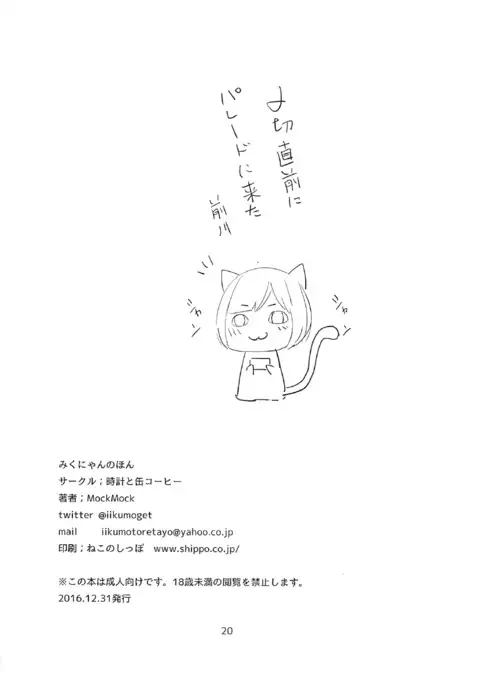 〆切直前に
パレードに来た
前川
ジャン
ジャン
みくにゃんのほん
サークル；時計と缶コーヒー
著者；MockMock
twitter @iikumoget
mail iikumotoretayo@yahoo.co.jp
印刷；ねこのしっぽ www.shippo.co.jp/
※この本は成人向けです。18歳未満の閲覧を禁止します。
2016.12.31発行
20